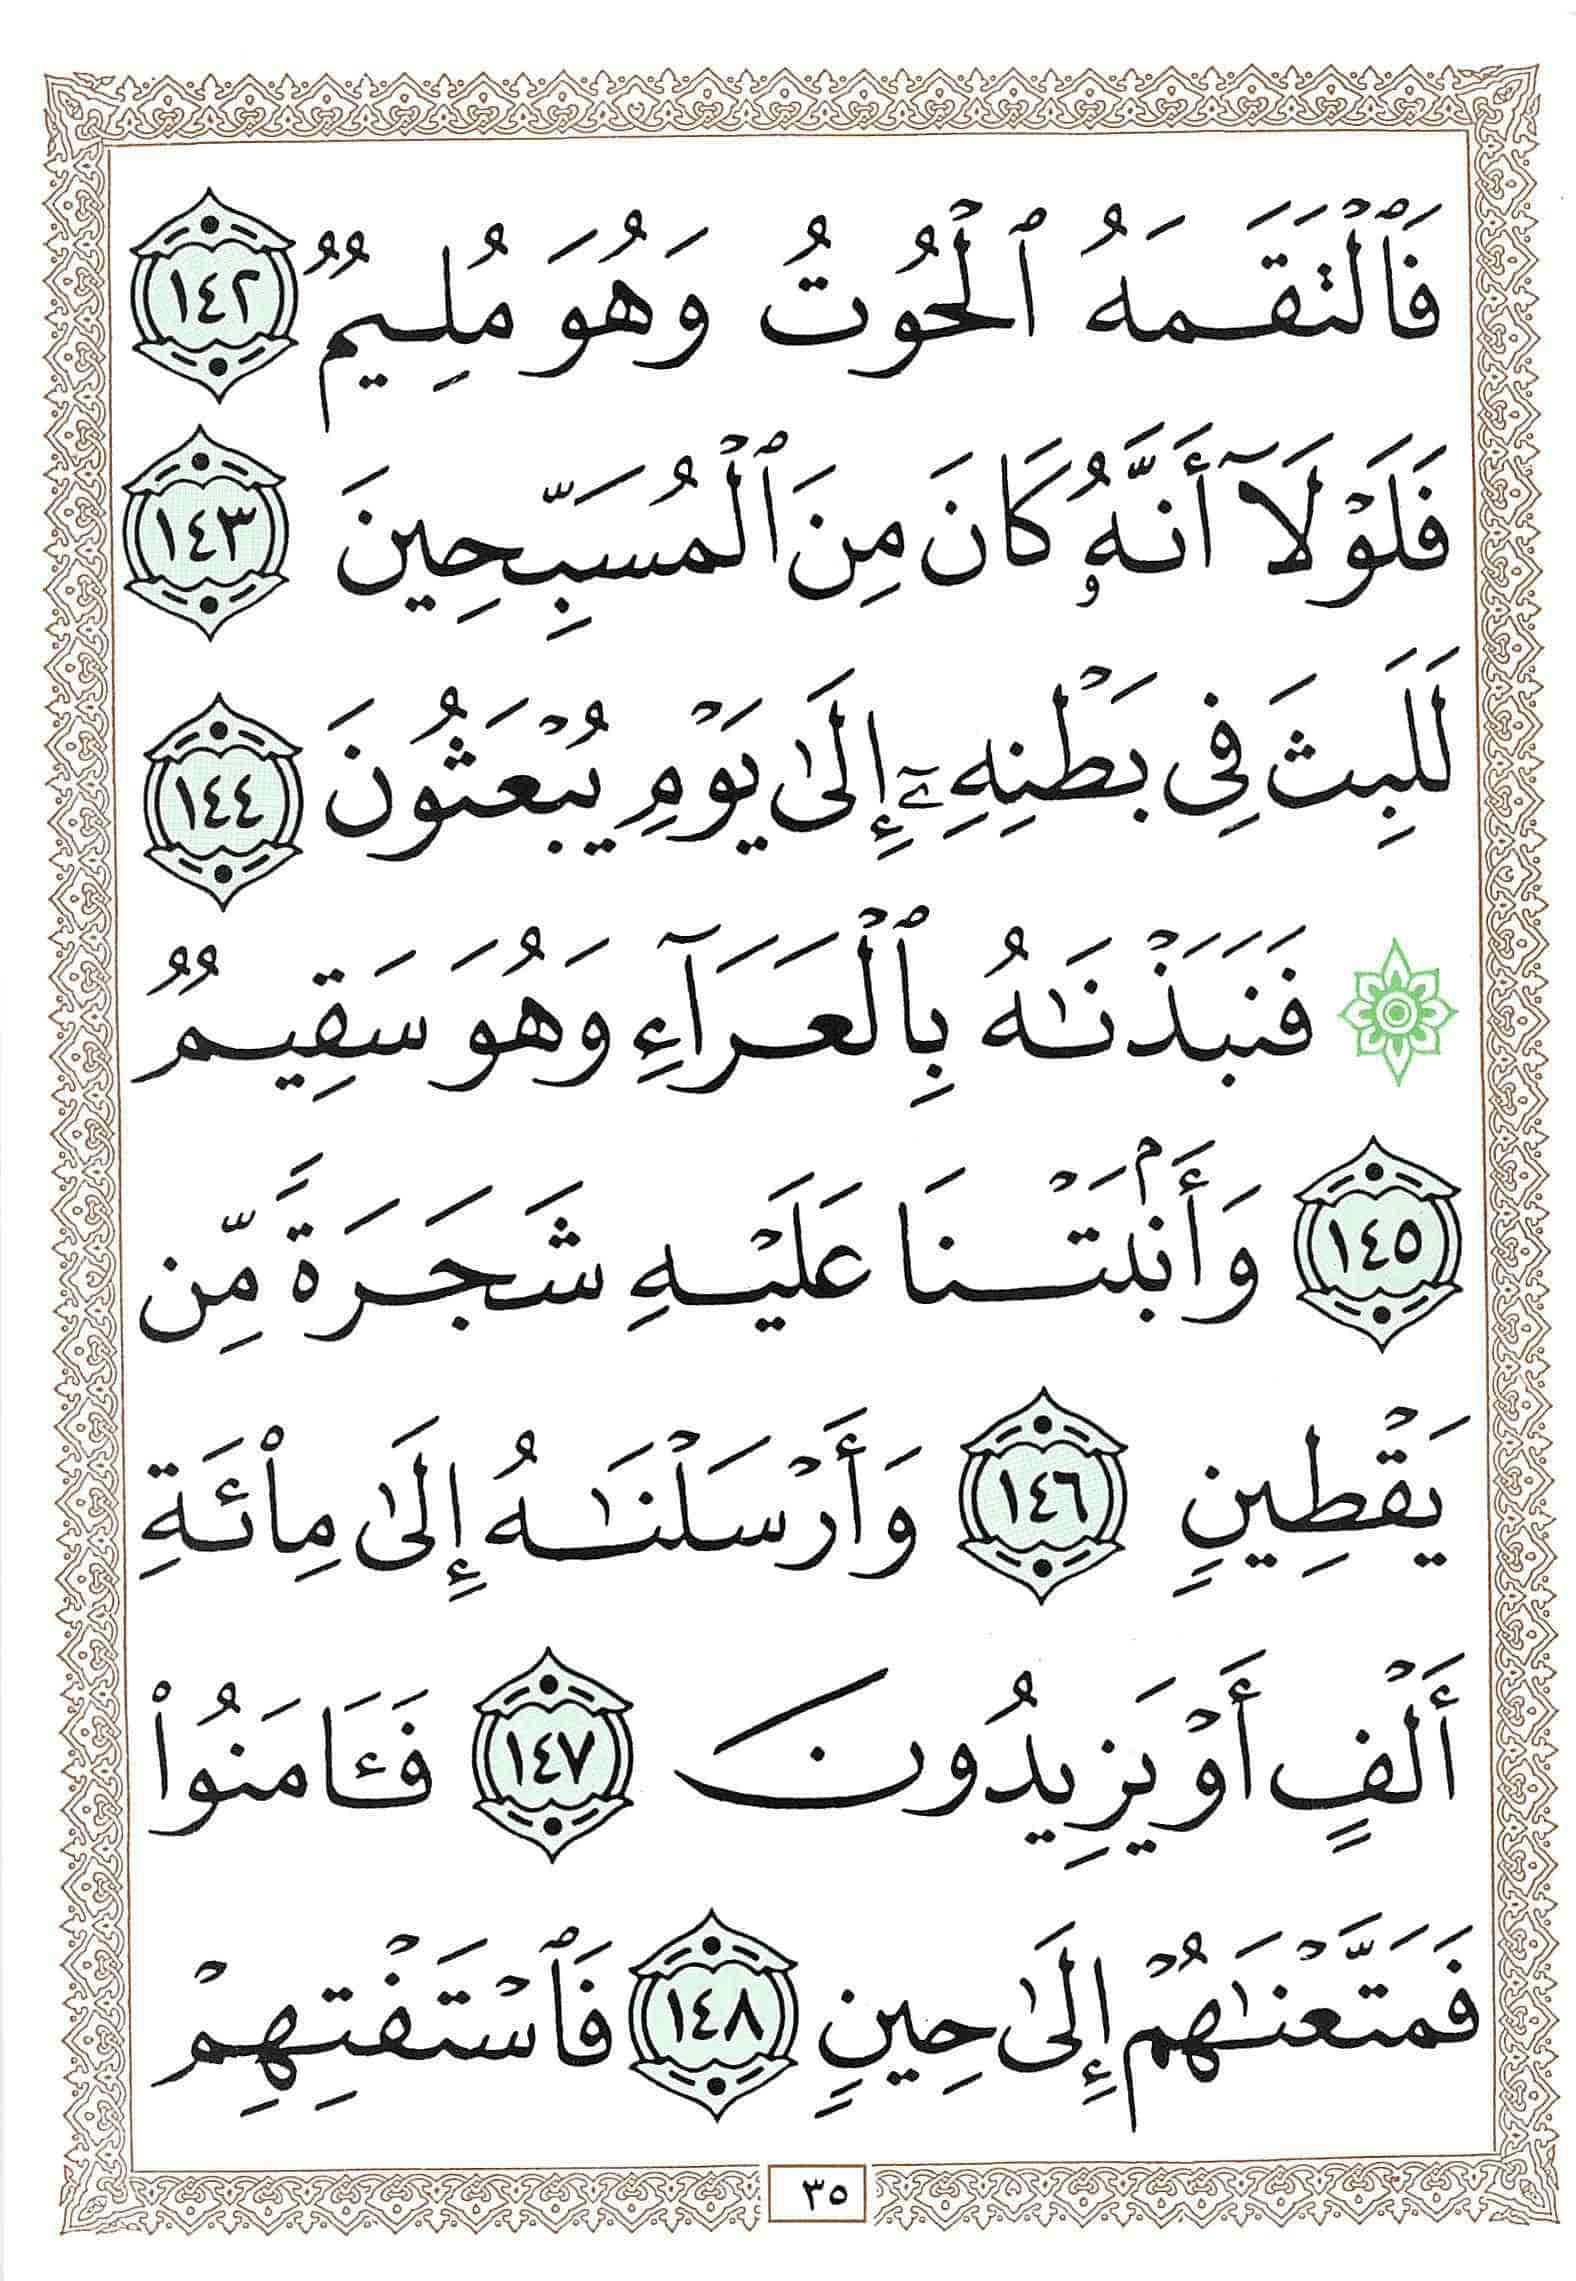 فَٱلْتَقَمَهُ ٱلْحُوتُ وَهُوَ مُلِيمٌ ١٤٢
فَلَوْلَآ أَنَّهُۥ كَانَ مِنَ ٱلْمُسَبِّحِينَ ١٤٣
لَلَبِثَ فِى بَطْنِهِۦٓ إِلَىٰ يَوْمِ يُبْعَثُونَ ١٤٤
۞ فَنَبَذْنَٰهُ بِٱلْعَرَآءِ وَهُوَ سَقِيمٌ
١٤٥ وَأَنۢبَتْنَا عَلَيْهِ شَجَرَةً مِّن
يَقْطِينٍ ١٤٦ وَأَرْسَلْنَٰهُ إِلَىٰ مِا۟ئَةِ
أَلْفٍ أَوْ يَزِيدُونَ ١٤٧ فَـَٔامَنُوا۟
فَمَتَّعْنَٰهُمْ إِلَىٰ حِينٍ ١٤٨ فَٱسْتَفْتِهِمْ
٣٥